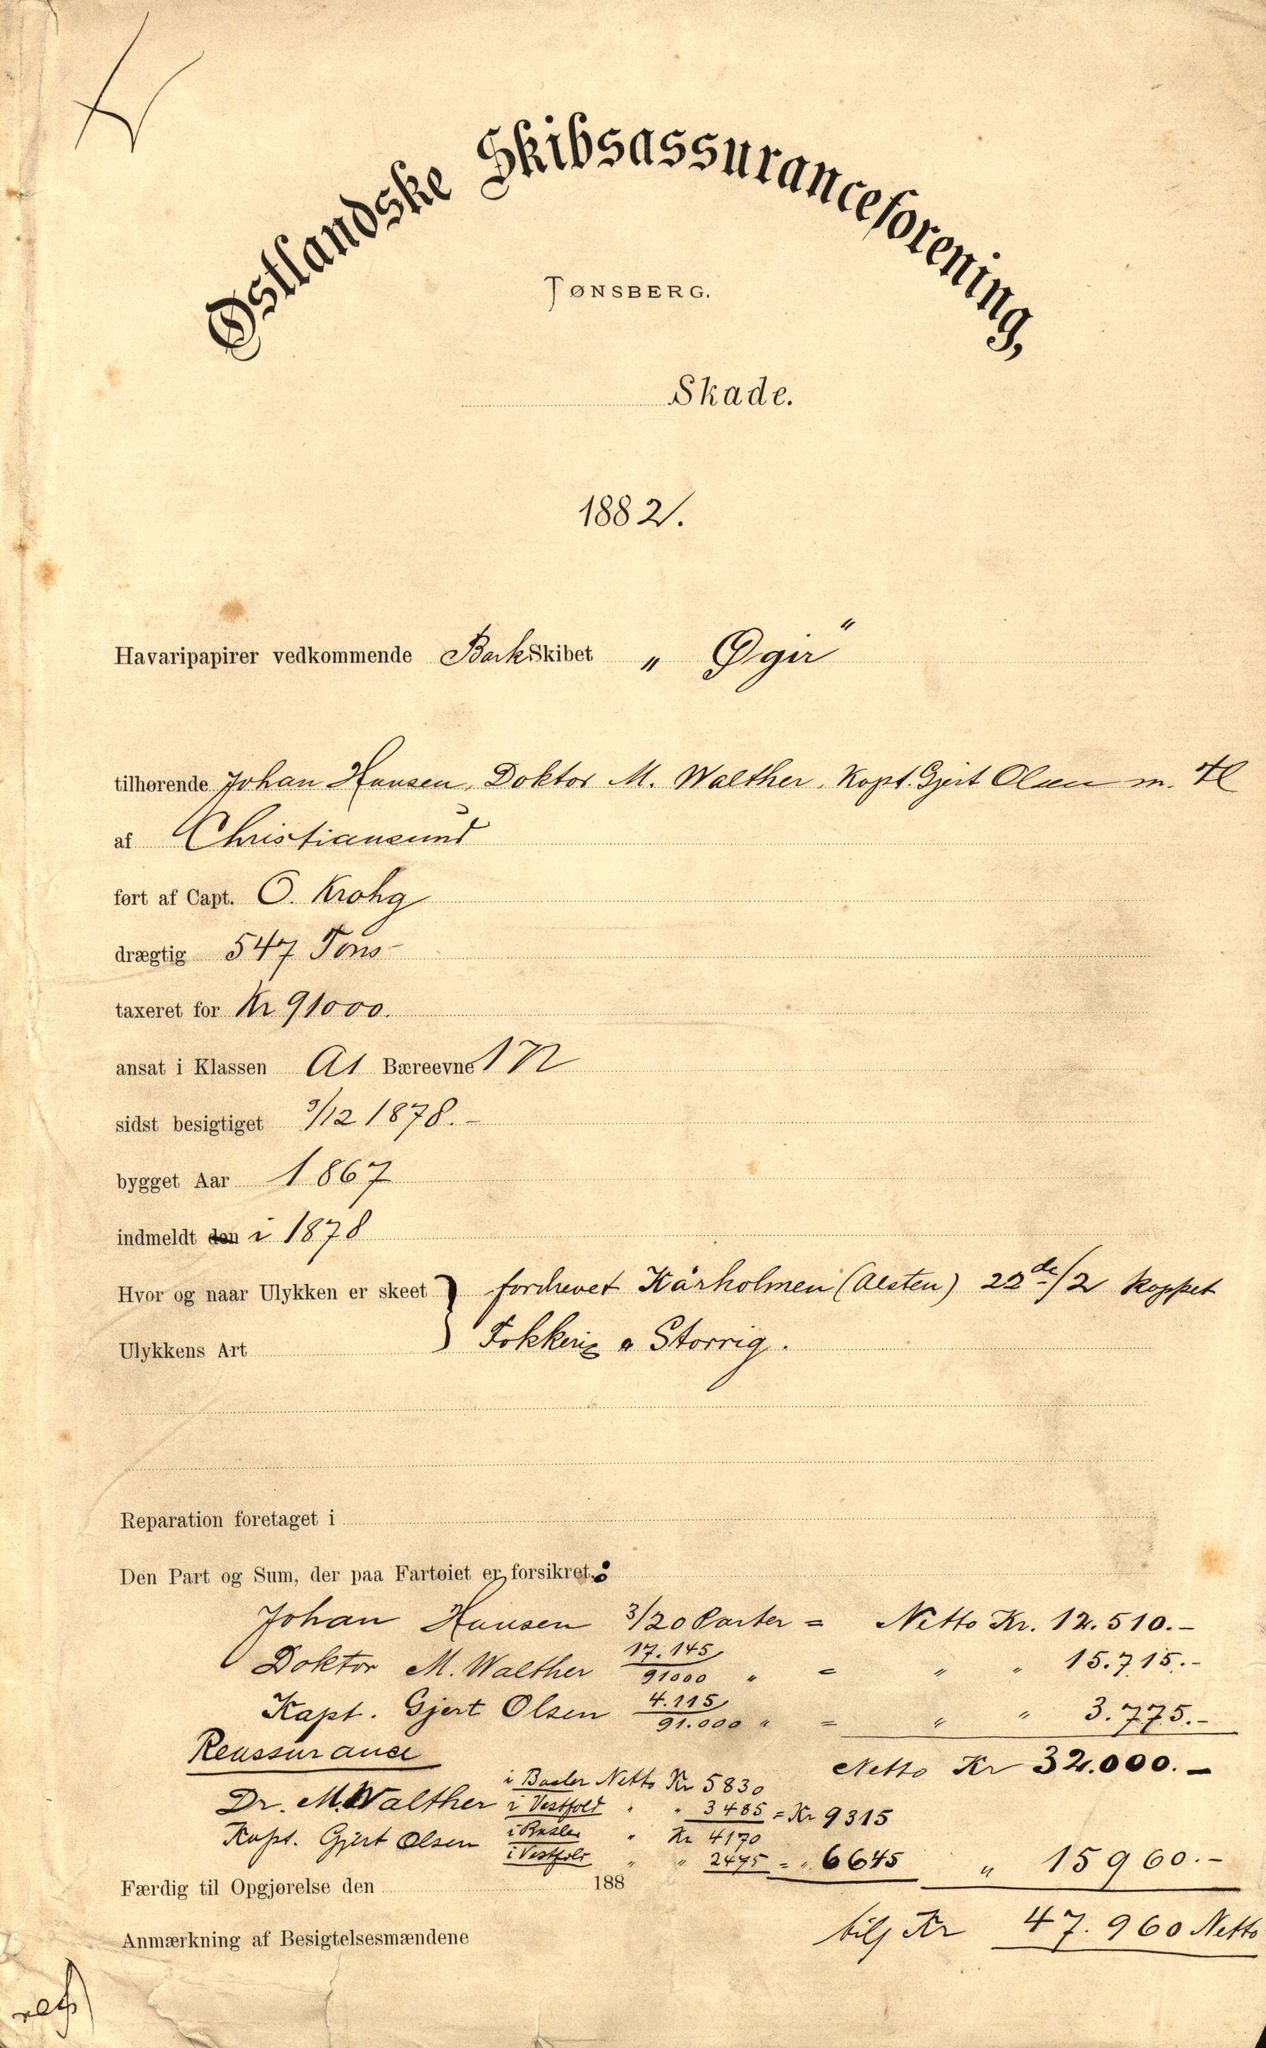 Østlandske Skibsassuranceforening,
TØNSBERG.
Skade.
1882.
Havaripapirer vedkommende Bark Skibet „ Øgir "
tilhørende Johan Hansen, Doktor M. Walther, Kapt. Gjert Olsen m. fl
af Christiansund
ført af Capt. O. Krohg
drægtig 547 Tons
taxeret for Kr 91000.
ansat i Klassen A1 Bæreevne
sidst besigtiget 9/12 1878.-
bygget Aar 1867
indmeldt den i 1878
Hvor og naar Ulykken er skeet } fordrevet Kårholmen (Alsten) 22de/2 kappet
Ulykkens Art Fokkerig & Storrig.
Reparation foretaget i
Den Part og Sum, der paa Fartøiet er forsikret:
Johan Hansen 3/20 Parter = Netto Kr. 12.510.-
Doktor M. Walther 17.145/91000 " = " " 15.715.-
Kapt. Gjert Olsen 4.115/91.000 " = " " 3.775.-
Reassurance Netto Kr 32.000.-
Dr. M. Walther i Netto Kr 5830
i Vestfold " " 3485 = Kr 9315
Kapt. Gjert Olsen i " Kr 4170
i Vestfold " " 2475 = " 6645 " 15960.-
Færdig til Opgjørelse den 188
tils Kr 47.960 Netto
Anmærkning af Besigtelsesmændene